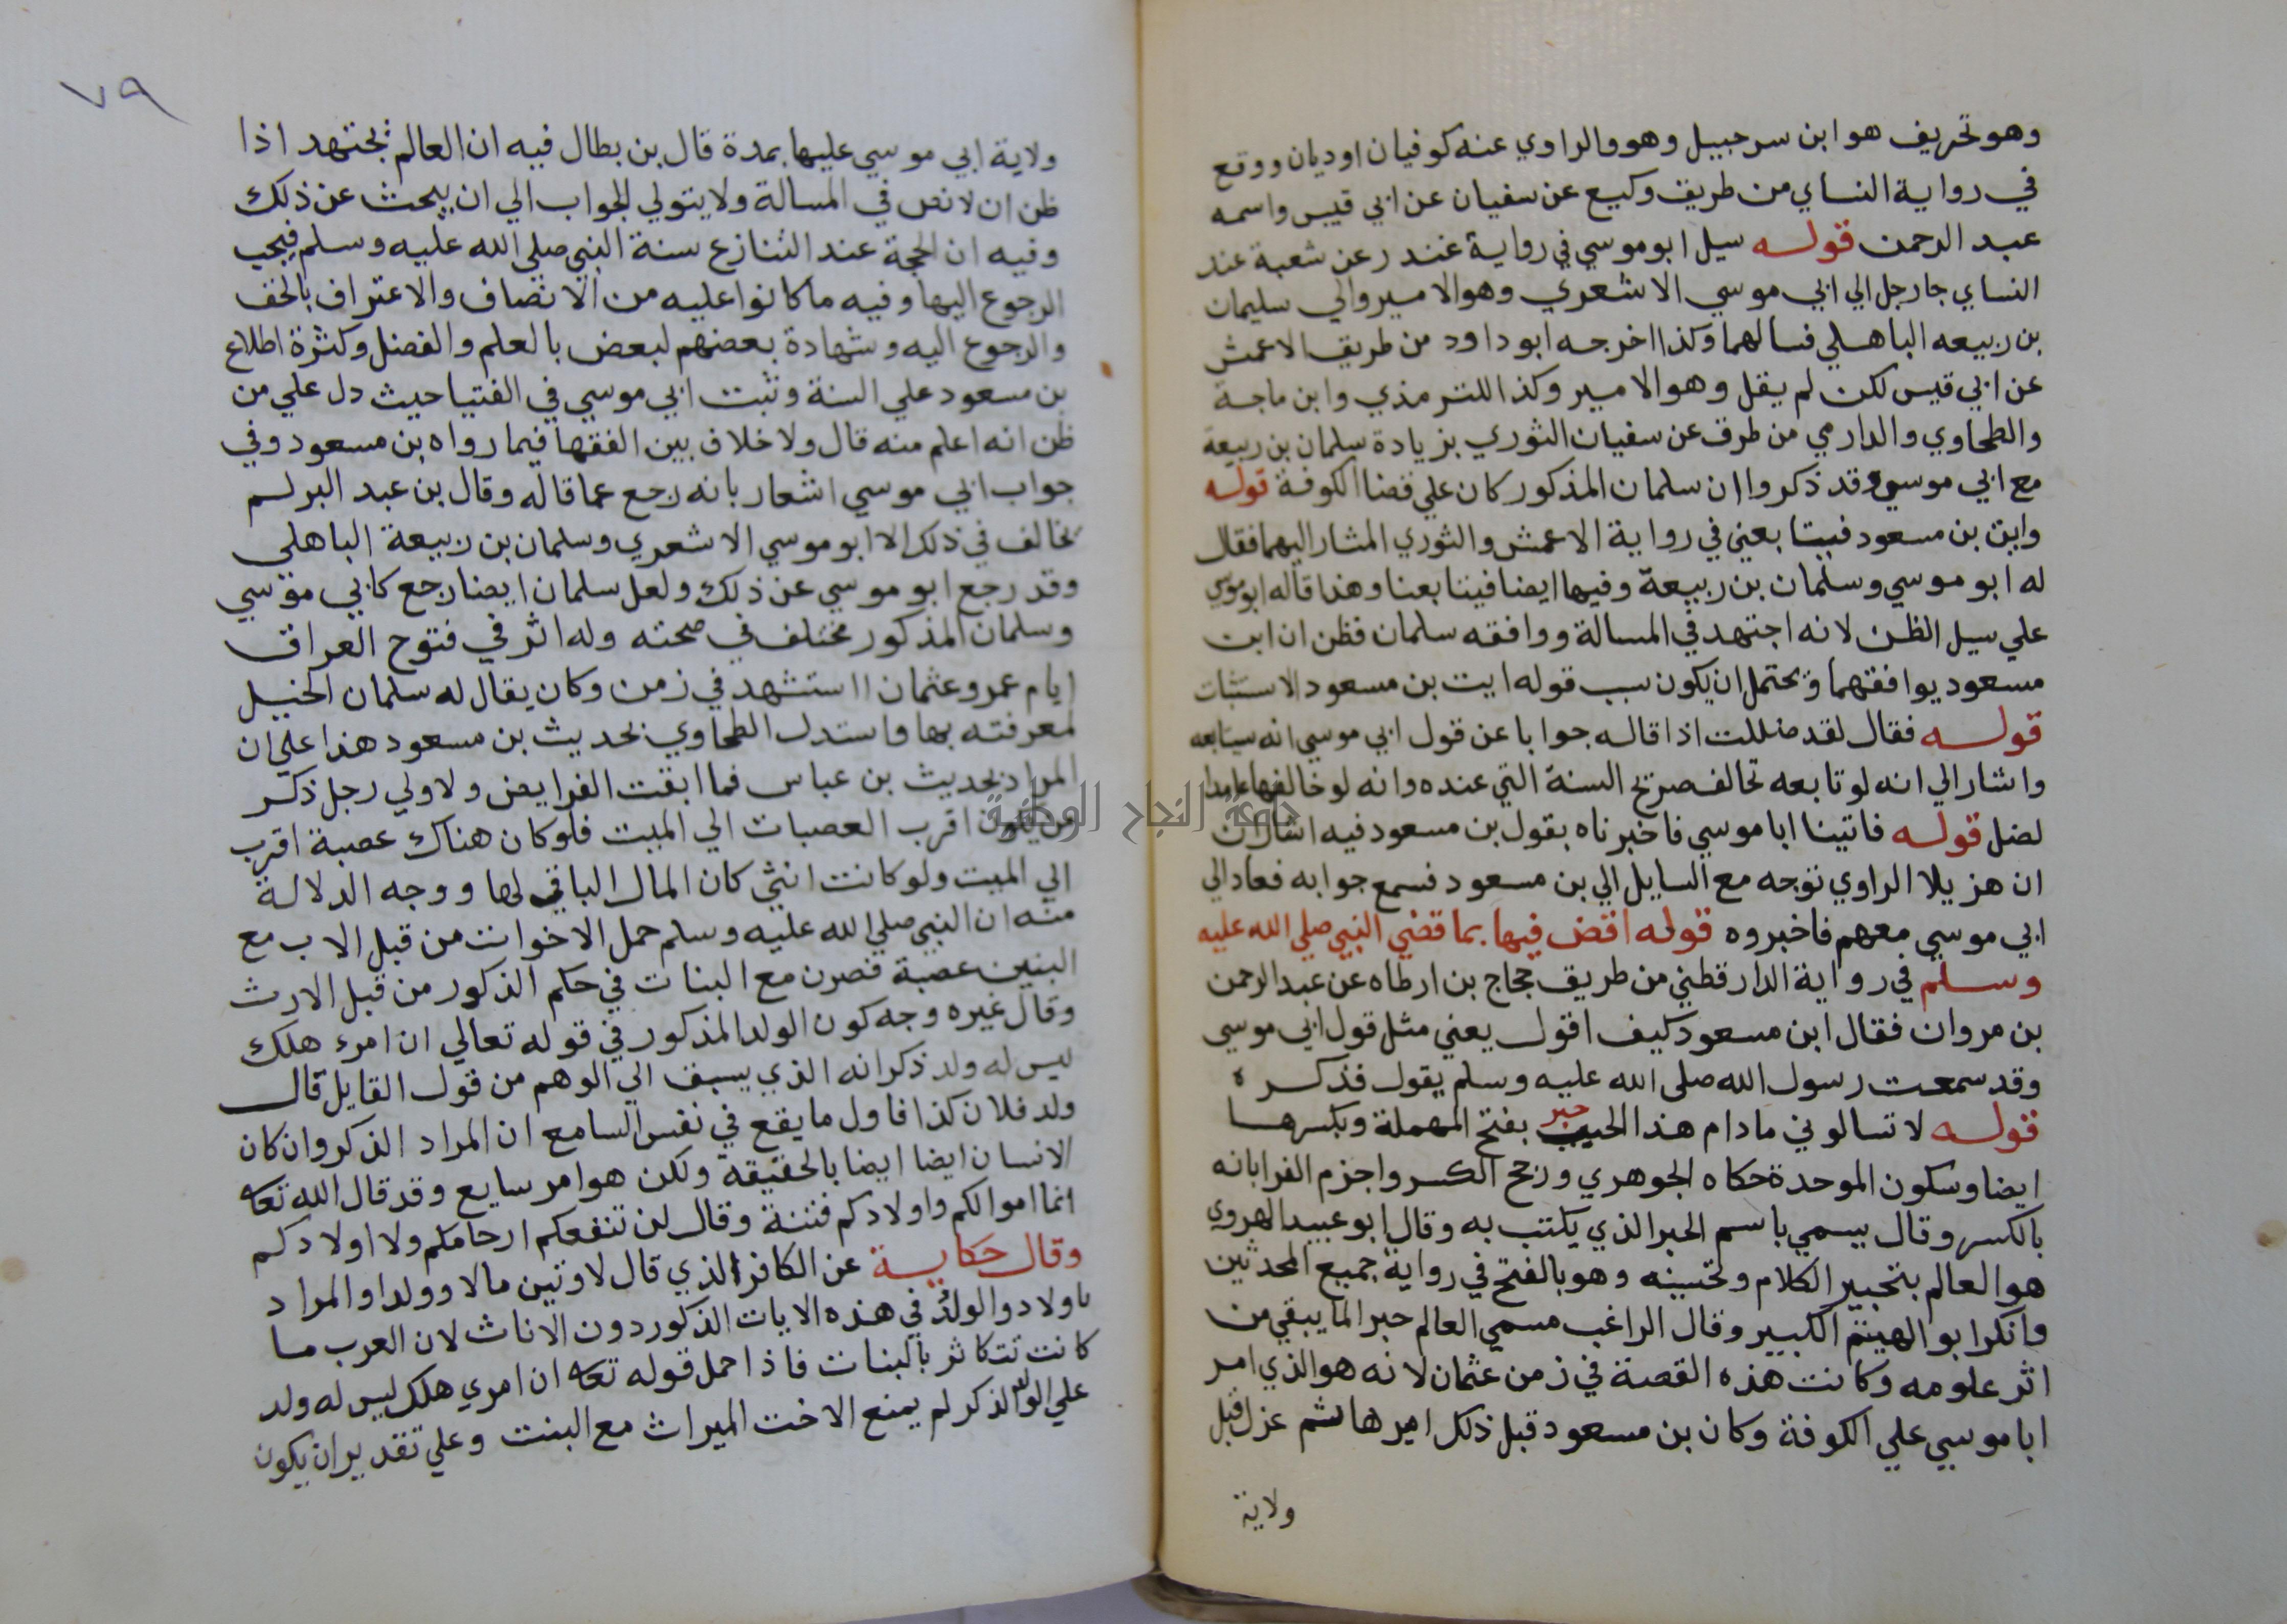 وهو تحريف هو ابن سرحبيل وهو والراوي عنه كوفيان اوديان ووقع
في رواية النساي من طريق وكيع عن سفيان عن ابي قيس واسمه
عبد الرحمن قوله سيل ابو موسي في رواية غندر عن شعبة عند
النساي جا رجل الي ابي موسي الاشعري وهو الامير والي سليمان
بن ربيعه الباهلي فسالهما وكذا اخرجه ابو داود من طريق الاعمش
عن ابي قيس لكن لم يقل وهو الامير وكذا للترمذي وابن ماجة
والطحاوي والدارمي من طرق عن سفيان الثوري بزيادة سلمان بن ربيعة
مع ابي موسي وقد ذكروا ان سلمان المذكور كان علي قضا الكوفة قوله
وايت بن مسعود فيتابعني في رواية الاعمش والثوري المشار اليهما فقال
له ابو موسي وسلمان بن ربيعة وفيها ايضا فيتابعنا وهذا قاله ابو موسي
علي سيل الظن لانه اجتهد في المسالة ووافقه سلمان فظن ان ابن
مسعود يوافقهما ويحتمل ان يكون سبب قوله ايت بن مسعود الاستثبات
قوله فقال لقد ضللت اذا قاله جوابا عن قول ابي موسي انه سيتابعه
واشار الي انه لو تابعه تحالف صريح السنة التي عنده وانه لو خالفها عامدا
لضل قوله فاتينا ابا موسي فاخبرناه بقول بن مسعود فيه اشار ان
ان هزيلا الراوي توجه مع السايل الي بن مسعود فسمع جوابه فعاد الي
ابي موسي معهم فاخبروه قوله اقض فيها بما قضي النبي صلي الله عليه
وسلم في رواية الدارقطني من طريق حجاج بن ارطاه عن عبد الرحمن
بن مروان فقال ابن مسعود كيف اقول يعني مثل قول ابي موسي
وقد سمعت رسول الله صلى الله عليه وسلم يقول فذكره
قوله لا تسالوني ما دام هذا الحبر بفتح المهملة وبكسرها
ايضا وسكون الموحدة حكاه الجوهري ورجح الكسر واجزم الفرا بانه
بالكسر وقال بيسمي باسم الحبر الذي يكتب به وقال ابو عبيد الهروي
هو العالم بتحبير الكلام وتحسينه وهو بالفتح في رواية جميع المحدثين
وانكر ابو الهيثم الكبير وقال الراغب مسمي العالم حبرا لما يبقي من
اثر علومه وكانت هذه القصة في زمن عثمان لانه هو الذي امر
ابا موسي علي الكوفة وكان بن مسعود قبل ذلك اميرها ثم عزل قبل
ولاية
٧٩
ولاية ابي موسي عليها بمدة قال بن بطال فيه ان العالم يجتهد اذا
ظن ان لا نص في المسالة ولا يتولي الجواب الي ان يبحث عن ذلك
وفيه ان الحجة عند التنازع سنة النبي صلي الله عليه وسلم فيجب
الرجوع اليها وفيه ما كانوا عليه من الانصاف والاعتراف بالحق
والرجوع اليه وشهادة بعضهم لبعض بالعلم والفضل وكثرة اطلاع
بن مسعود علي السنة وتثبت ابي موسي في الفتيا حيث دل علي من
ظن انه اعلم منه قال ولا خلاف بين الفقها فيما رواه بن مسعود وفي
جواب ابي موسي اشعار بانه رجع عما قاله وقال بن عبد البر لسم
يخالف في ذلك الا ابو موسي الاشعري وسلمان بن ربيعة الباهلي
وقد رجع ابو موسي عن ذلك ولعل سلمان ايضا رجع كابي موسي
وسلمان المذكور مختلف في صحته وله اثر في فتوح العراق
ايام عمر وعثمان استشهد في زمن وكان يقال له سلمان الخيل
لمعرفته بها واستدل الطحاوي بحديث بن مسعود هذا علي ان
المراد بحديث بن عباس فما ابقت الفرايض ولاولي رجل ذكر
من يكون اقرب العصبات الي الميت فلو كان هناك عصبة اقرب
الي الميت ولو كانت انثي كان المال الباقي لها ووجه الدلالة
منه ان النبي صلي الله عليه وسلم حمل الاخوات من قبل الاب مع
البنين عصبة فصرن مع البنات في حكم الذكور من قبل الارث
وقال غيره وجه كون الولد المذكور في قوله تعالي ان امرء هلك
ليس له ولد ذكر انه الذي يسبق الي الوهم من قول القايل قال
ولد فلان كذا فاول ما يقع في نفس السامع ان المراد الذكر وان كان
الانسان ايضا ايضا بالحقيقة ولكن هو امر سايع وقد قال الله تعا
انما اموالكم واولادكم فتنة وقال لن تنفعكم ارحامكم ولا اولادكم
وقال حكاية عن الكافر الذي قال لاوتين مالا وولدا والمراد
باولاد والولد في هذه الايات الذكور دون الاناث لان العرب ما
كانت تتكاثر بالبنات فاذا حمل قوله تعا ان امري هلك ليس له ولد
علي الولد الذكر لم يمنع الاخت الميراث مع البنت وعلي تقدير ان يكون
جامعة النجاح الوطنية